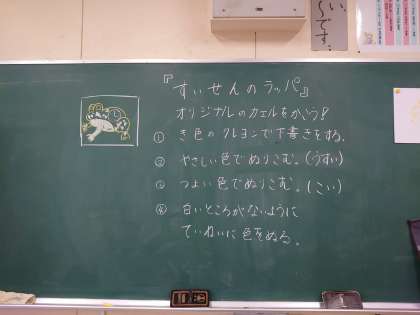 『すいせんのラッパ』
オリジナルのカエルをかこう!
① き色のクレヨンで下書きをする。
② やさしい色でぬりこむ。(うすい)
③ つよい色でぬりこむ。(こい)
④ 白いところがないように
ていねいに色をぬる。